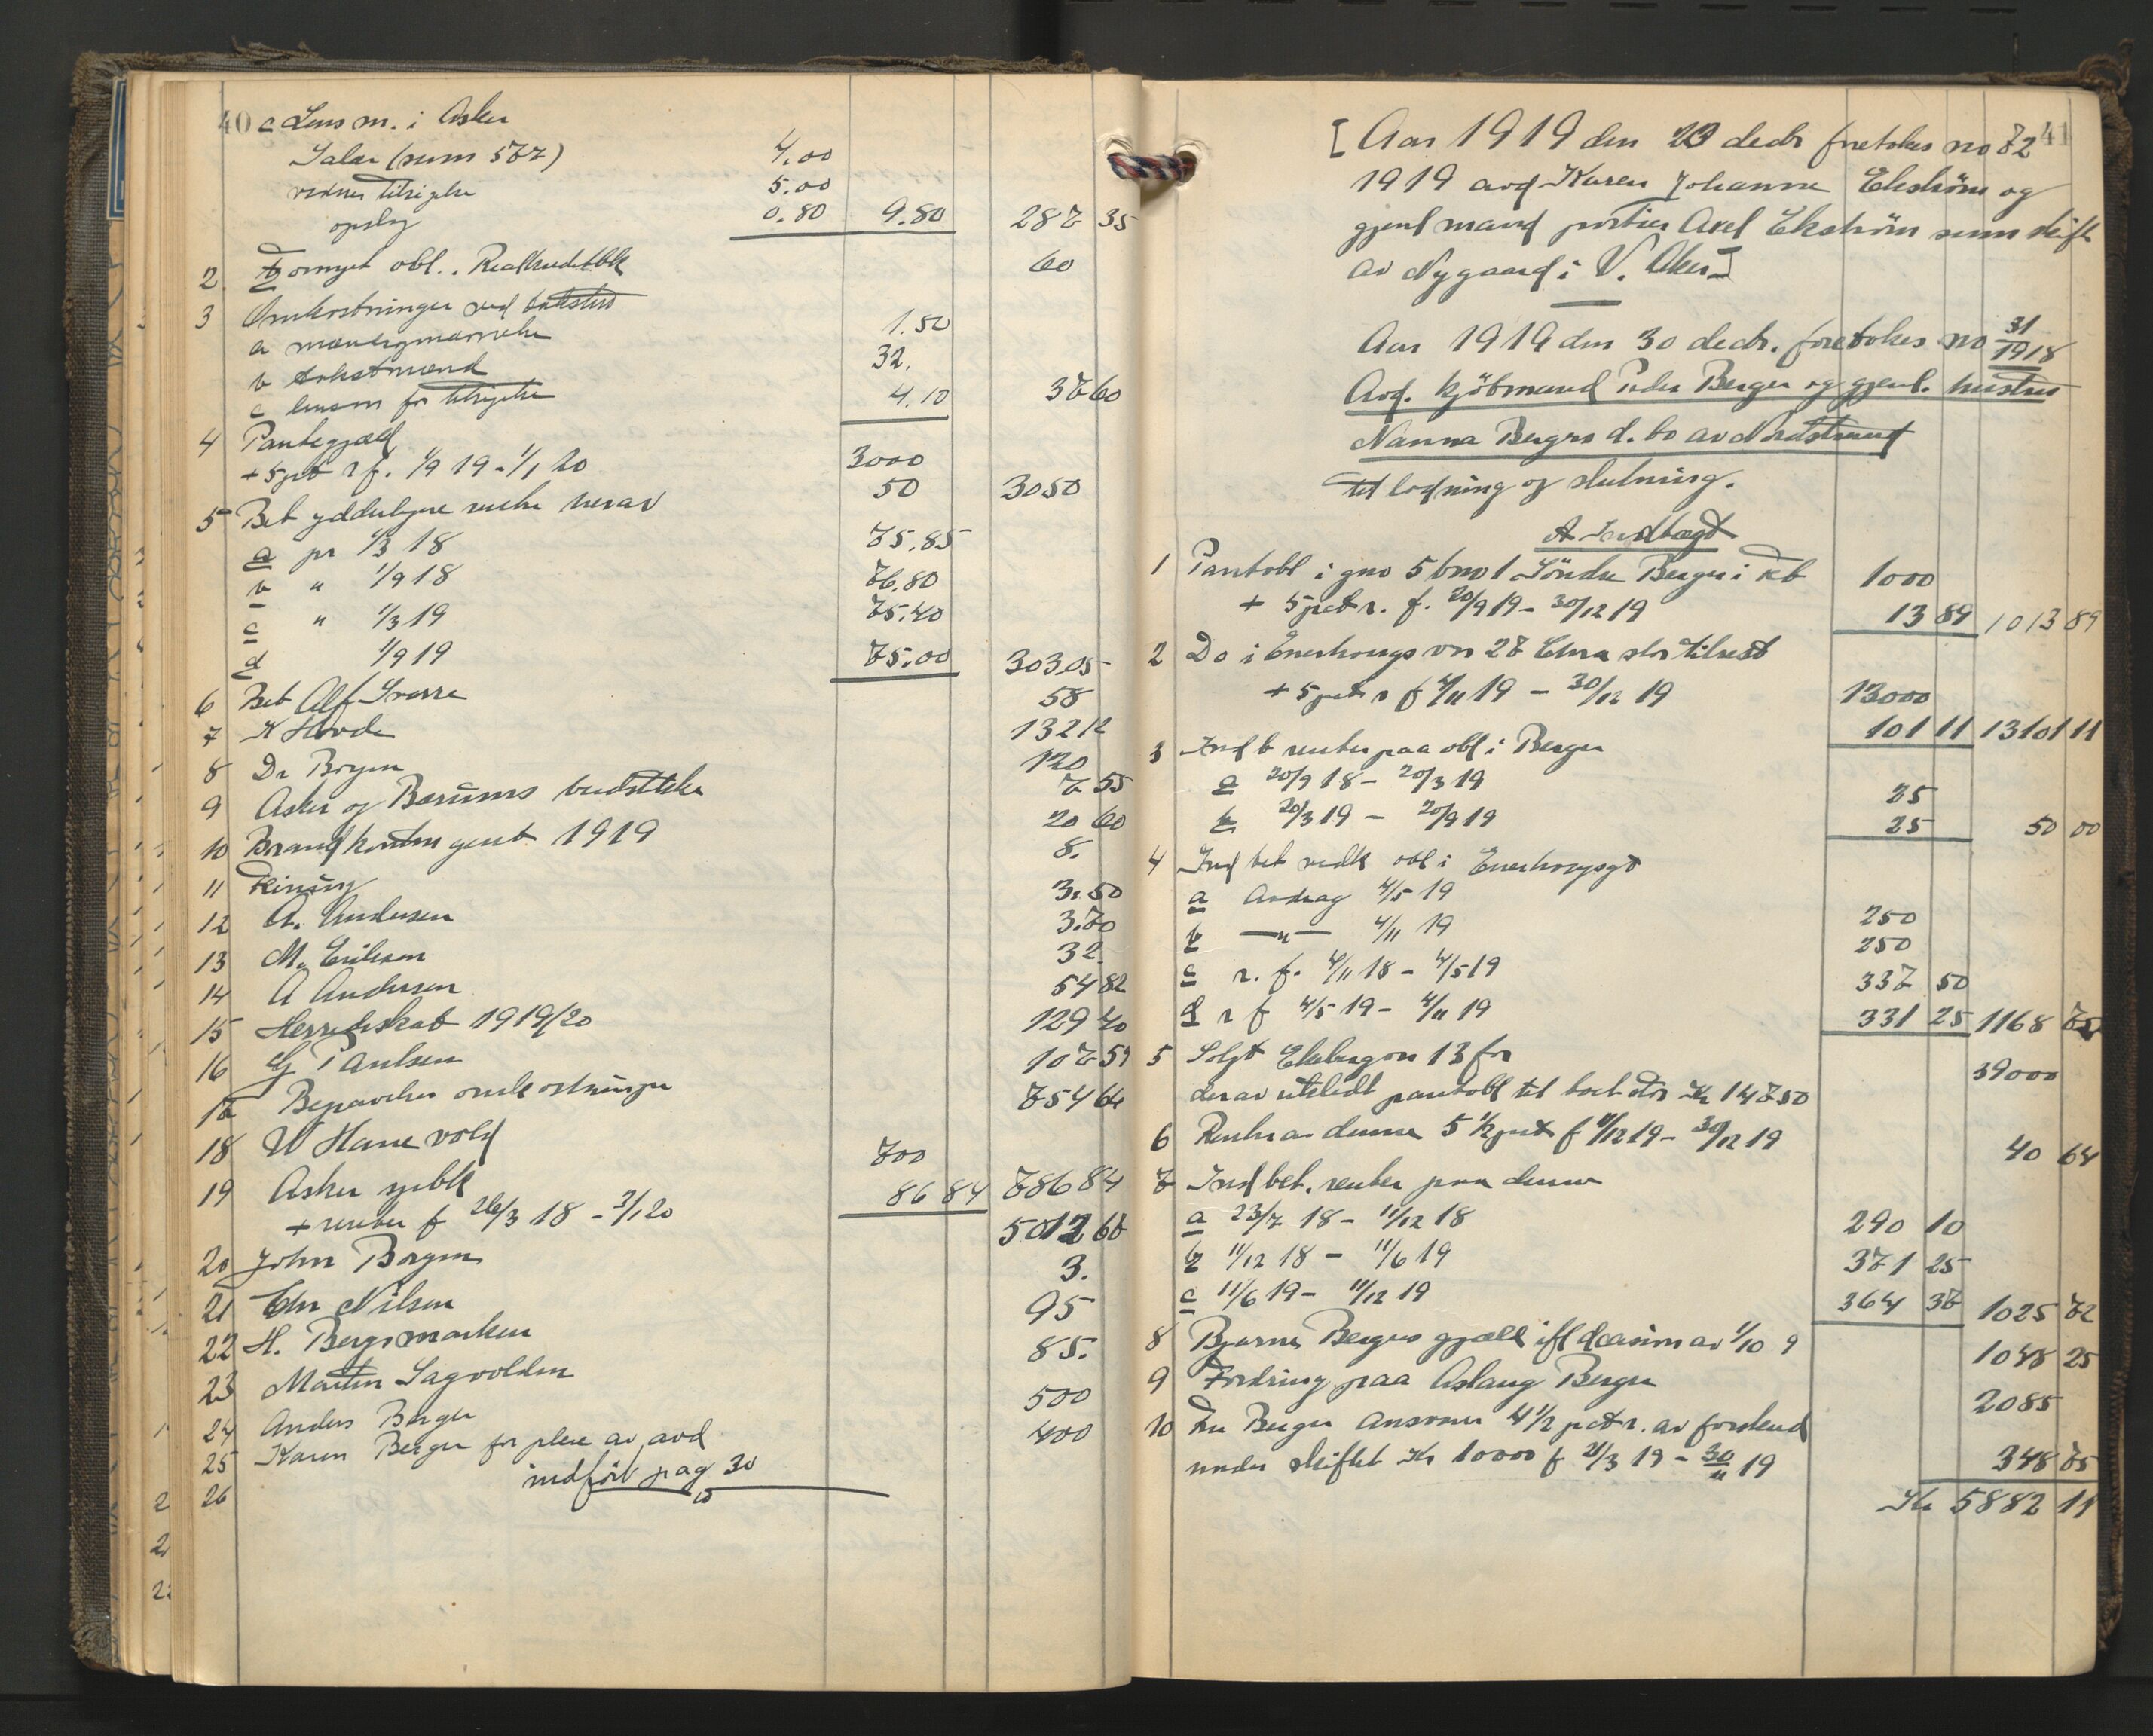 40 c Lensm. i Asker
Salær (sum 577) 4.00
vidners tilsigelse 5.00
opslag 0.80 9.80 287 35
2 Fornyet obl. . Realkreditbk 60
3 Omkostninger ved takstus
a 1.50
b takstmænd 32.
c lensm for tilsigelse 4.10 37 60
4 Pantegjæld 3000
+ 5 pct r f. 1/9 19 - 1/1 20 50 3050
5 Bet yderligere renter herav
a pr 1/3 18 75.85
b " 1/9 18 76.80
c " 1/3 19 75.40
d 1/9 19 75.00 303 05
6 Bet Alf Svarre 58
7 K Hovde 132 12
8 Dr Borgen 120
9 Asker og Bærums budstikke 7 55
10 Brandkontingent 1919 20 60
11 8.
12 A. Andersen 31.50
13 M. Eriksen 3.70
14 A Andersen 32.
15 Herredsskat 1919/20 54 82
16 G Paulsen 129 40
17 Begravelses omkostninger 107 59
18 W Hanevold 754 64
19 Asker spbk 700
+ renter f 26/3 18 - 2/1 20 86 84 786 84
20 John Borgen 5012 67
21 Chr Nilsen 3.
22 H. Bergsmarken 95
23 Martin Sagvolden 85.
24 Anders Berger 500
25 Karen Berger for pleie av avd 400
26 indført pag 30
41
[ Aar 1919 den 23 decbr foretokes no 72
1919 avd Karen Johanne Ekström og
gjenl mand portier Axel Ekström sam skifte
av Nygaard i V. Aker ]
Aar 1919 den 30 decbr. foretokes no 31/1918
Avd. kjöbmand Peder Berger og gjenl. hustru
Nanna Bergers d. bo av Nordstrand
til lodning og slutning.
A Indtægt
1 Pantobl i gno 5 bno 1 Söndre Berger i Kb 1000
+ 5 pct r. f. 20/9 19 - 30/12 19 13 89 1013 89
2 Do i Enerhougs vn 27 Chra stor tilrest 13000
+ 5 pct r f 4/11 19 - 30/12 19 101 11 13101 11
3 Indb renter paa obl i Berger
a 20/9 18 - 20/3 19 25
b 20/3 19 - 20/9 19 25 50 00
4 Indbet vedk obl i Enerhougsgt
a Avdrag 4/5 19 250
b — " — 4/11 19 250
c r. f. 4/11 18 - 4/5 19 337 50
d r f 4/5 19 - 4/11 19 331 25 1168 75
5 Solgt Ekebergvn 13 for 39000
derav utstedt pantobl til boet stor Kr 14750
6 Renter av denne 5 1/2 pct f 11/12 19 - 30/12 19 40 64
7 Indbet. renter paa denne
a 23/7 18 - 11/12 18 290 10
b 11/12 18 - 11/6 19 371 25
c 11/6 19 - 11/12 19 364 37 1025 72
8 Bjarne Bergers gjæld ifl av 1/10 9 1048 25
9 Fordring paa Aslaug Berger 2085
10 Fru Berger ansvarer 4 1/2 pct r. av forskud
under skiftet Kr 10000 f 21/3 19 - 30/11 19 348 75
Kr 5882 11